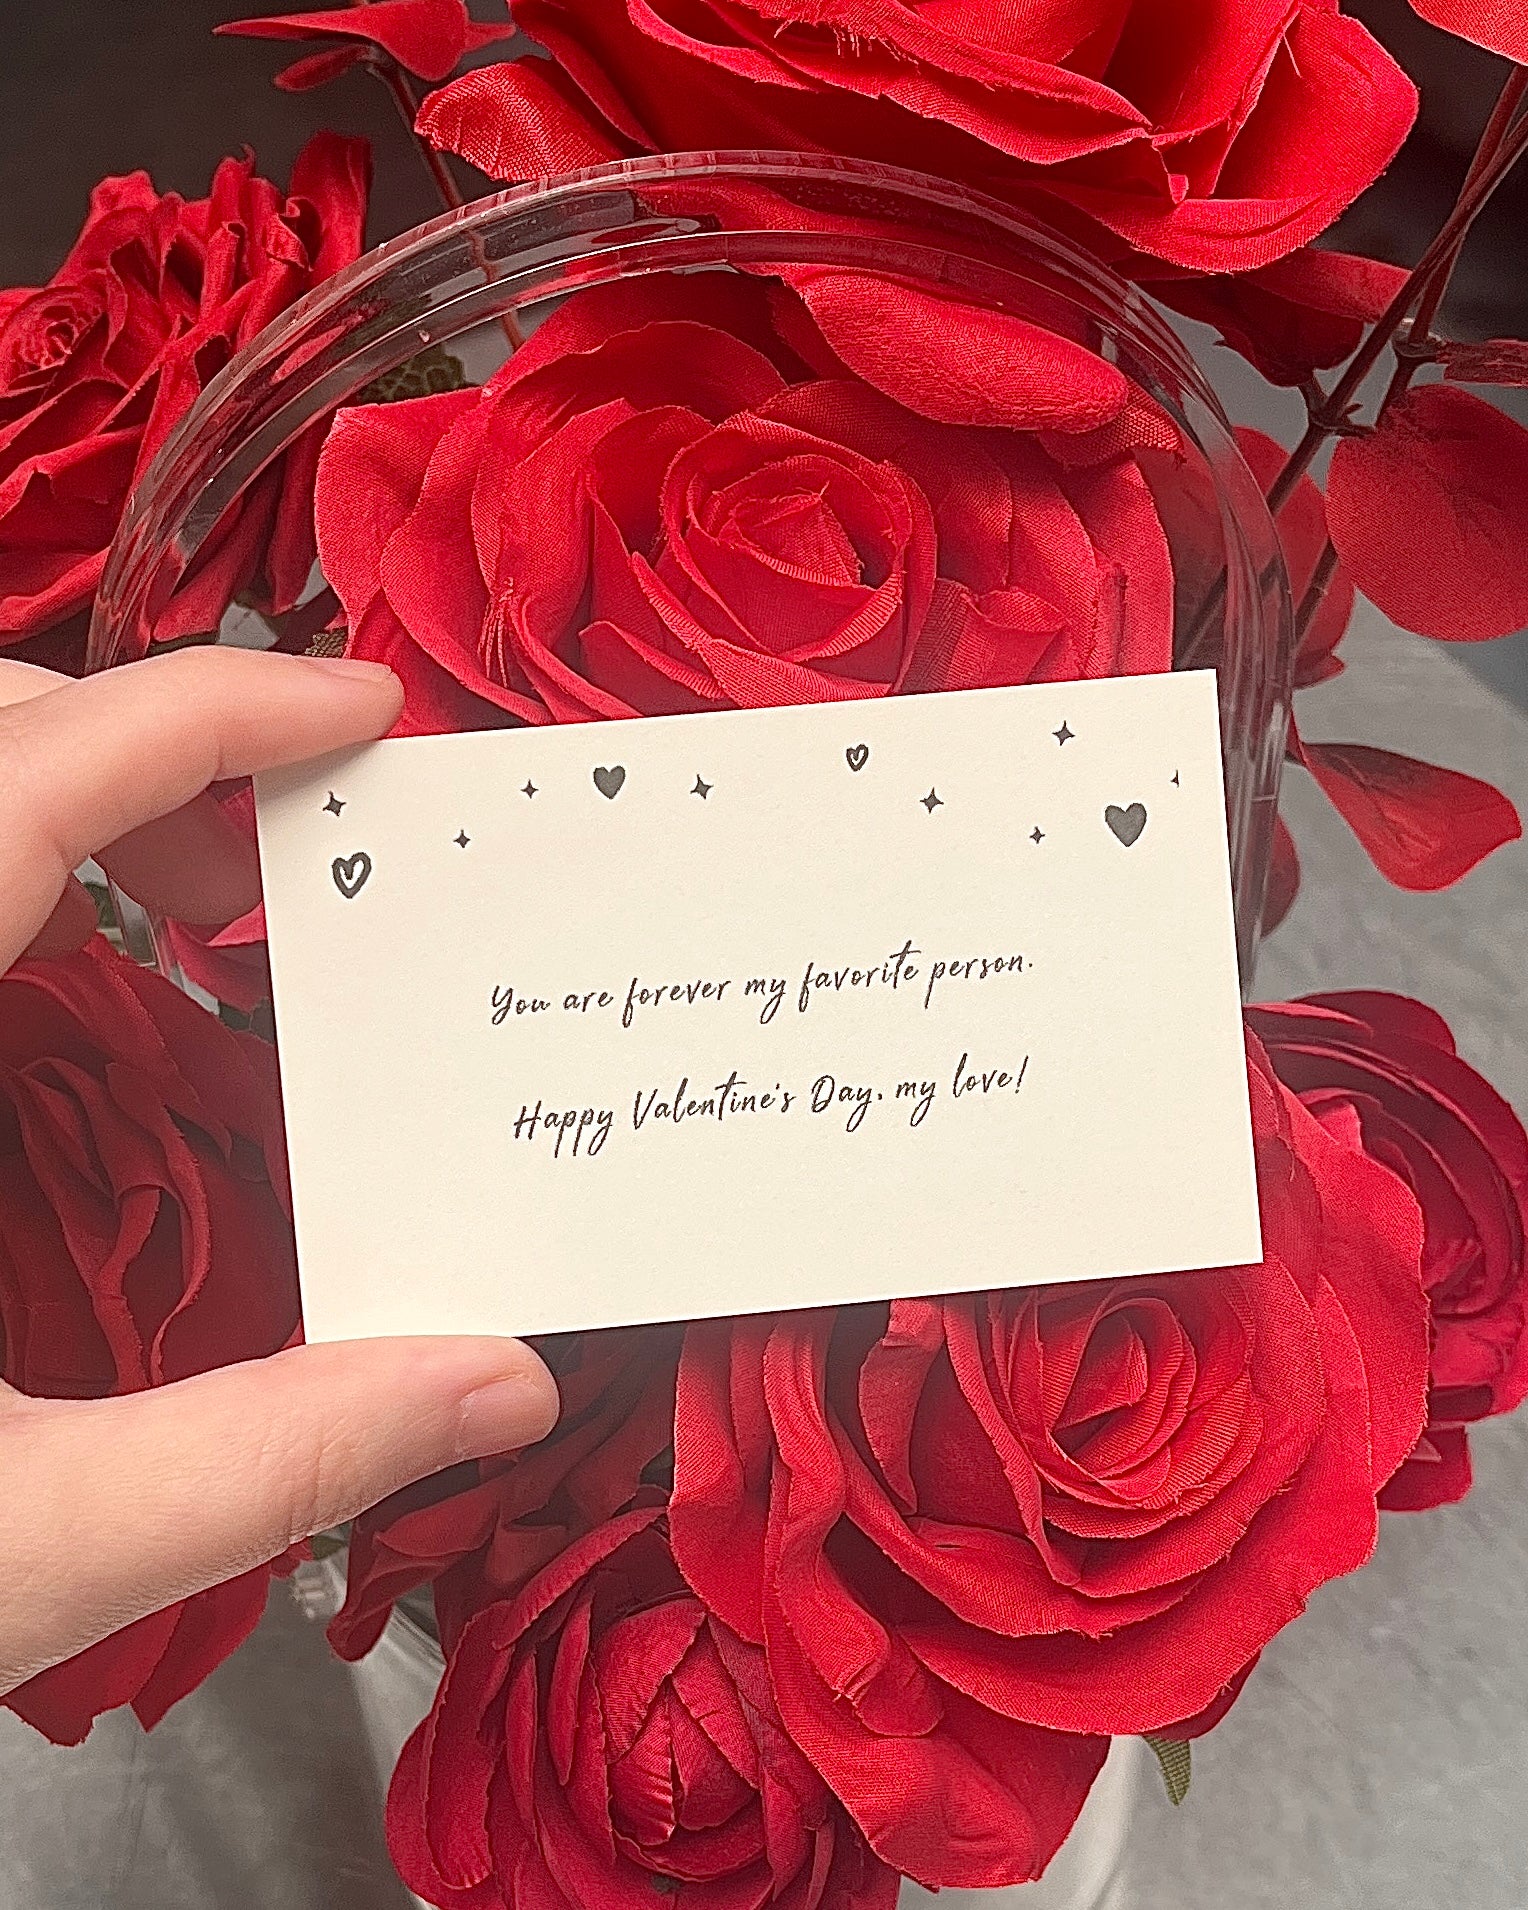 You are forever my favorite person.
Happy Valentine's Day, my love!